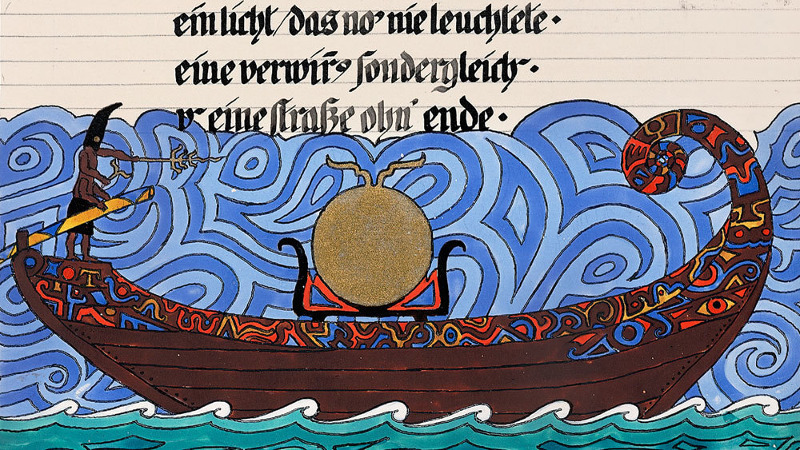 ein licht/das no' nie leuchtete ·
eine verwir̄g sondergleich' ·
v' eine straße ohn' ende ·